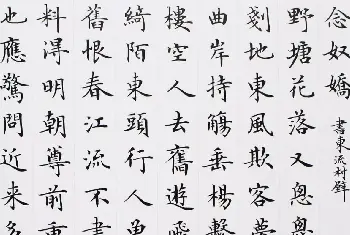 念奴嬌 書東流村壁
野塘花落又悤悤
剗地東風欺客夢
曲岸持觴垂楊繫
樓空人去舊遊飛
綺陌東頭行人曾
舊恨春江流不盡
料得明朝尊前重
也應驚問近來多